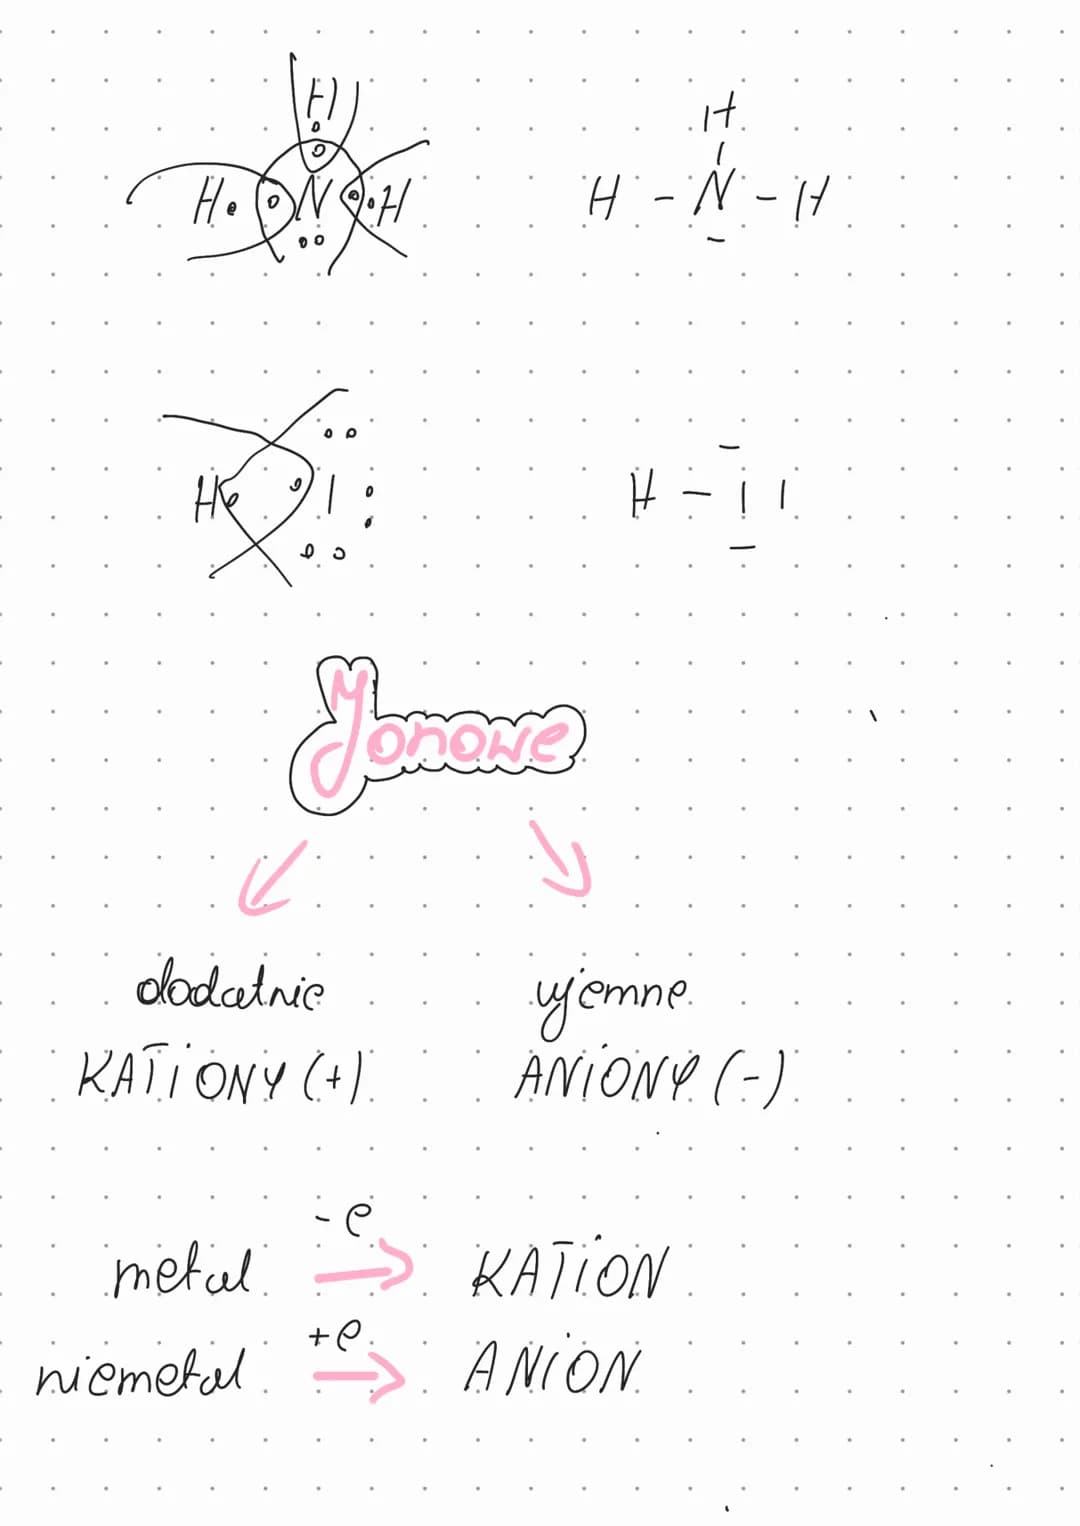 H H
H N H H - N - H
H I H - I I
Jonowe
dodatnie ujemne
KATIONY (+) ANIONY (-)
-e
metal → KATION
+e
niemetal → ANION